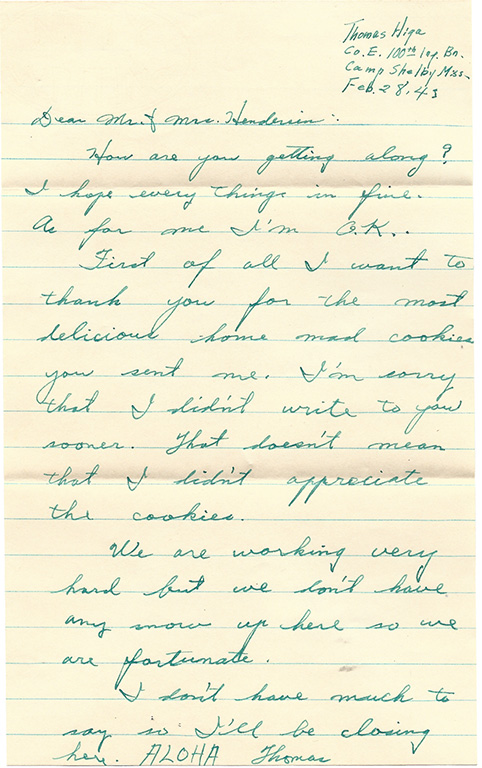 Thomas Higa
Co. E. 100th Inf. Bn.
Camp Shelby Miss.
Feb. 28, 43
Dear Mr. & Mrs. Henderson:
How are you getting along?
I hope every things in fine.
As for me I'm O.K..
First of all I want to
thank you for the most
delicious home mad cookies
you sent me. I'm sorry
that I didn't write to you
sooner. That doesn't mean
that I didn't appreciate
the cookies.
We are working very
hard but we don't have
any snow up here so we
are fortunate.
I don't have much to
say so I'll be closing
here. ALOHA Thomas